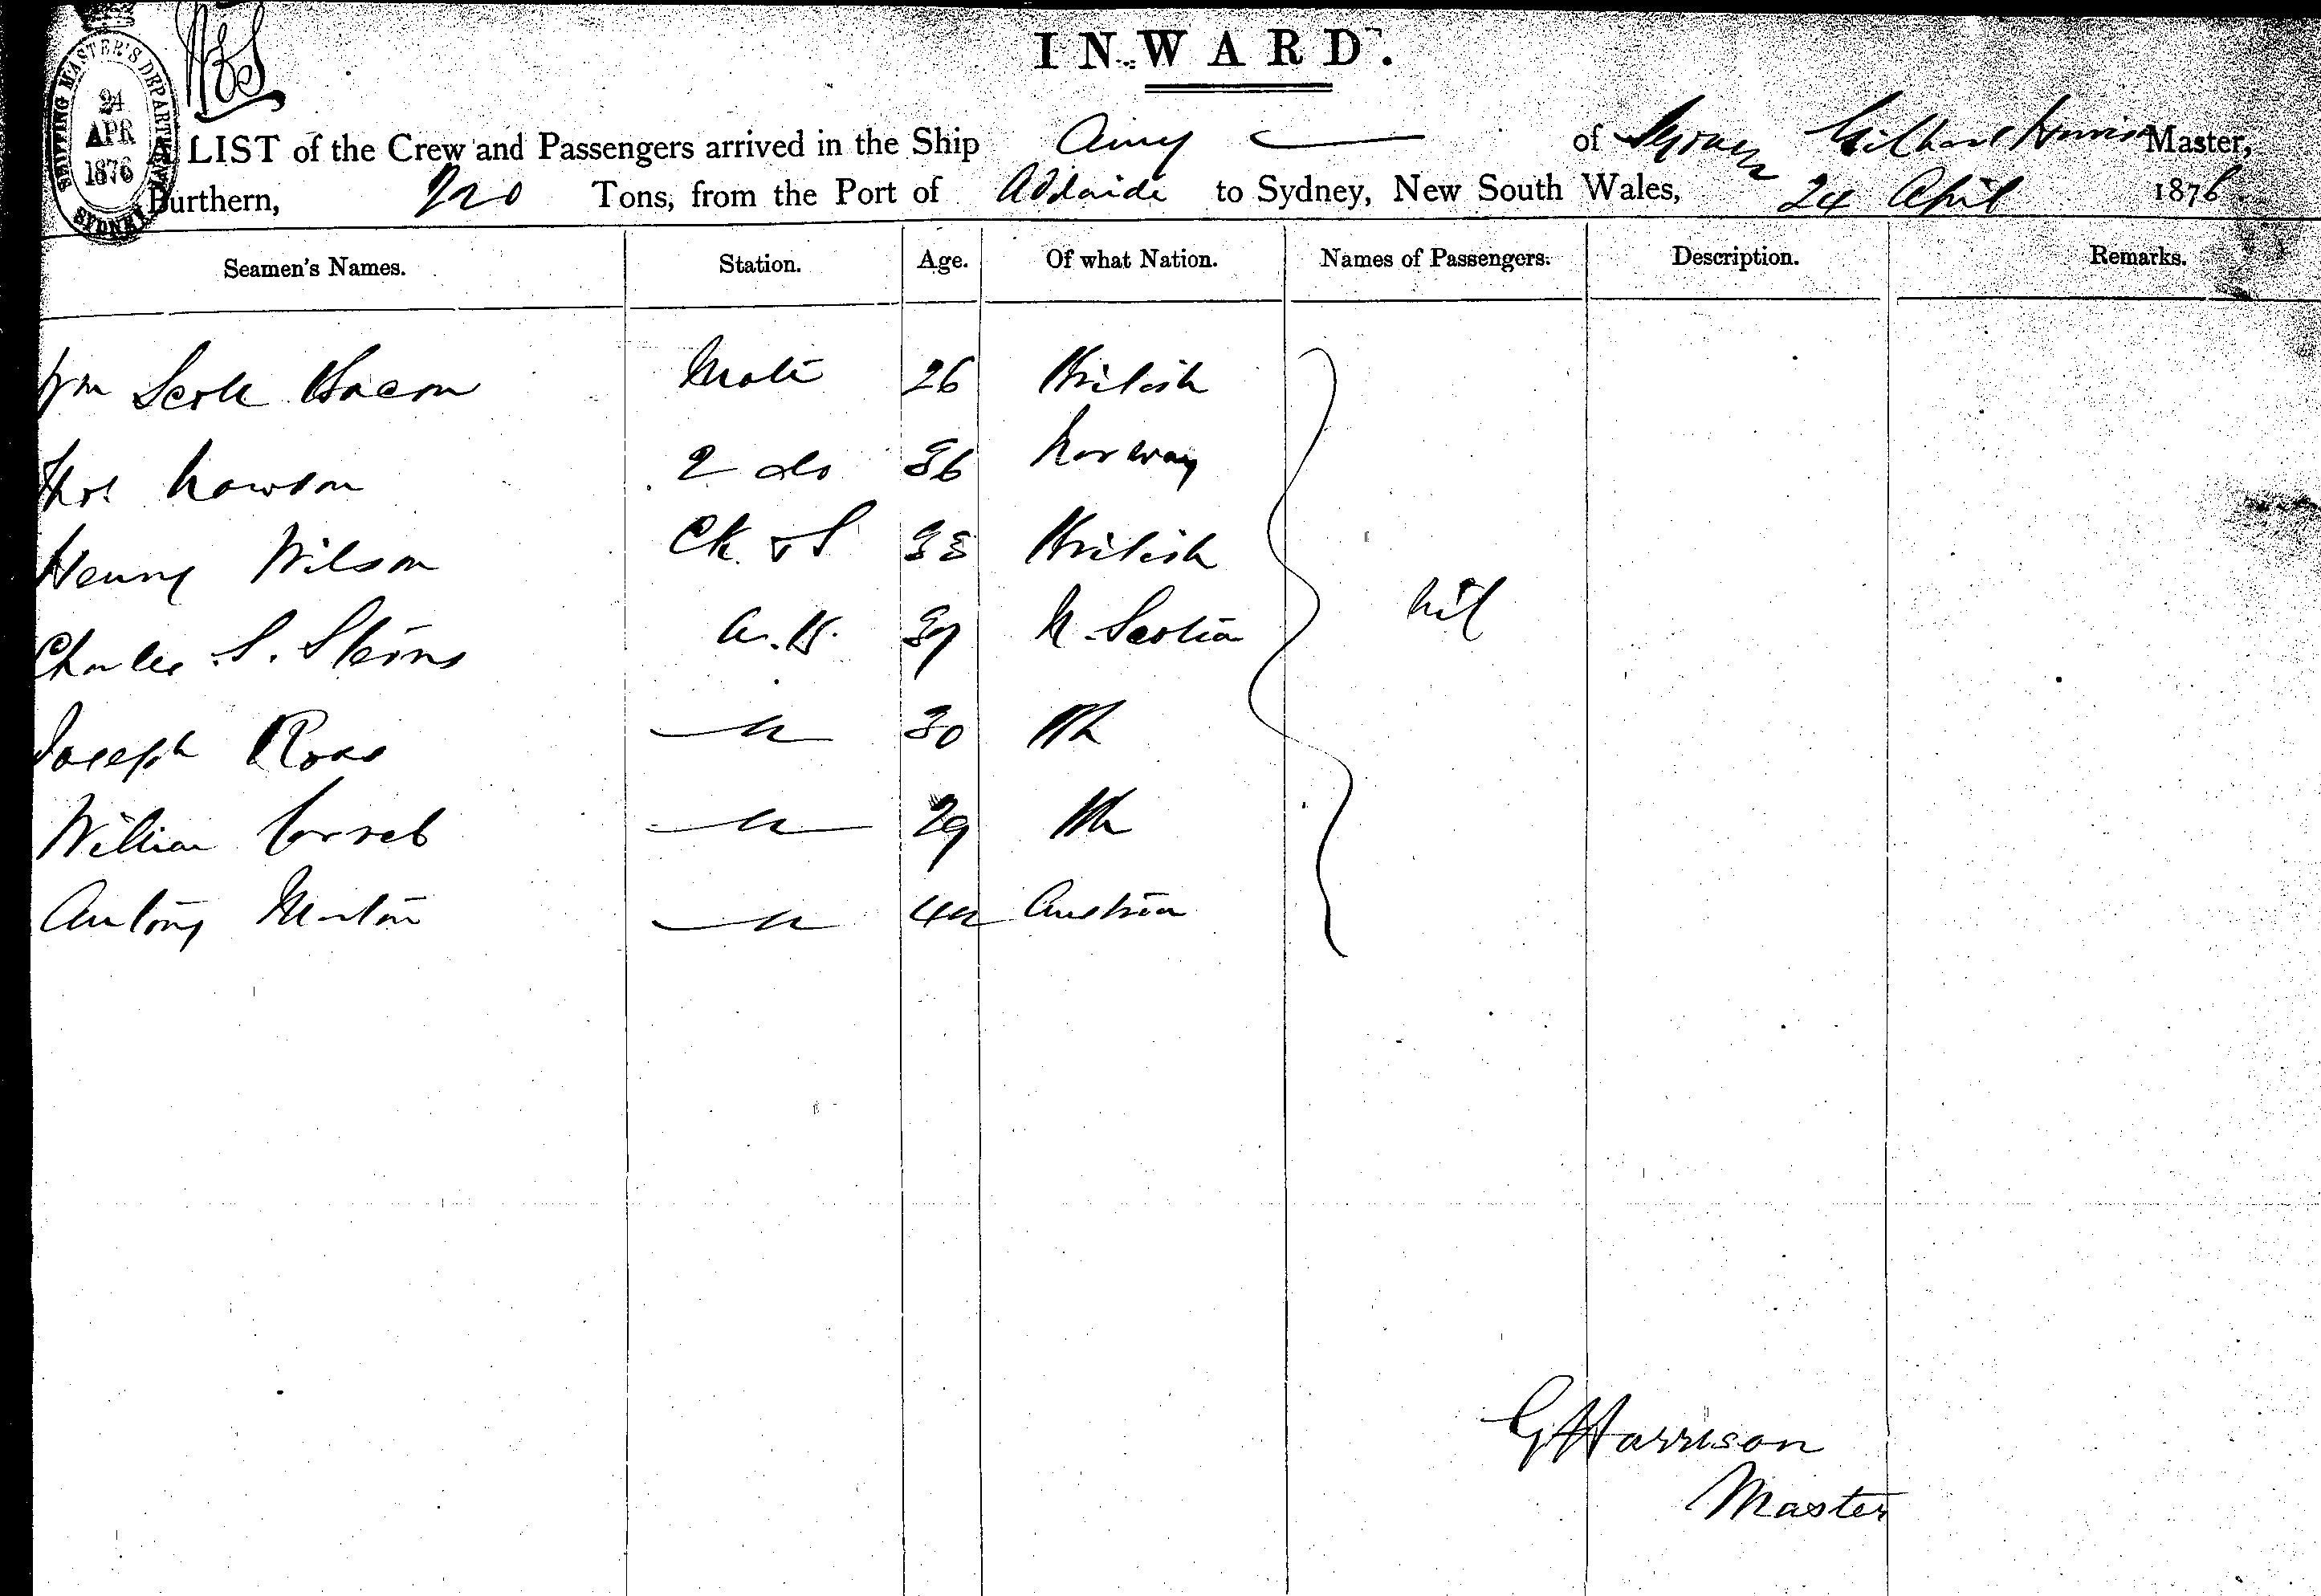 INWARD.
SHIPPING MASTER'S DEPARTMENT
24
APR
1876
SYDNEY
A LIST of the Crew and Passengers arrived in the Ship Amy of Sydney Gilbert Harrison Master,
Burthern, 220 Tons, from the Port of Adelaide to Sydney, New South Wales, 24 April 1876
Seamen's Names. Station. Age. Of what Nation. Names of Passengers. Description. Remarks.
Wm Scott Bacon Mate 26 British
Thos Nawson 2 do 36 Norway
Henry Wilson Ck & S 33 British
Charles S. Sterns A.B. 39 N. Scotia
nil
Joseph Ross 30 Bh
William 29 Bh
Antony Martin Austria
G Harrison
Master